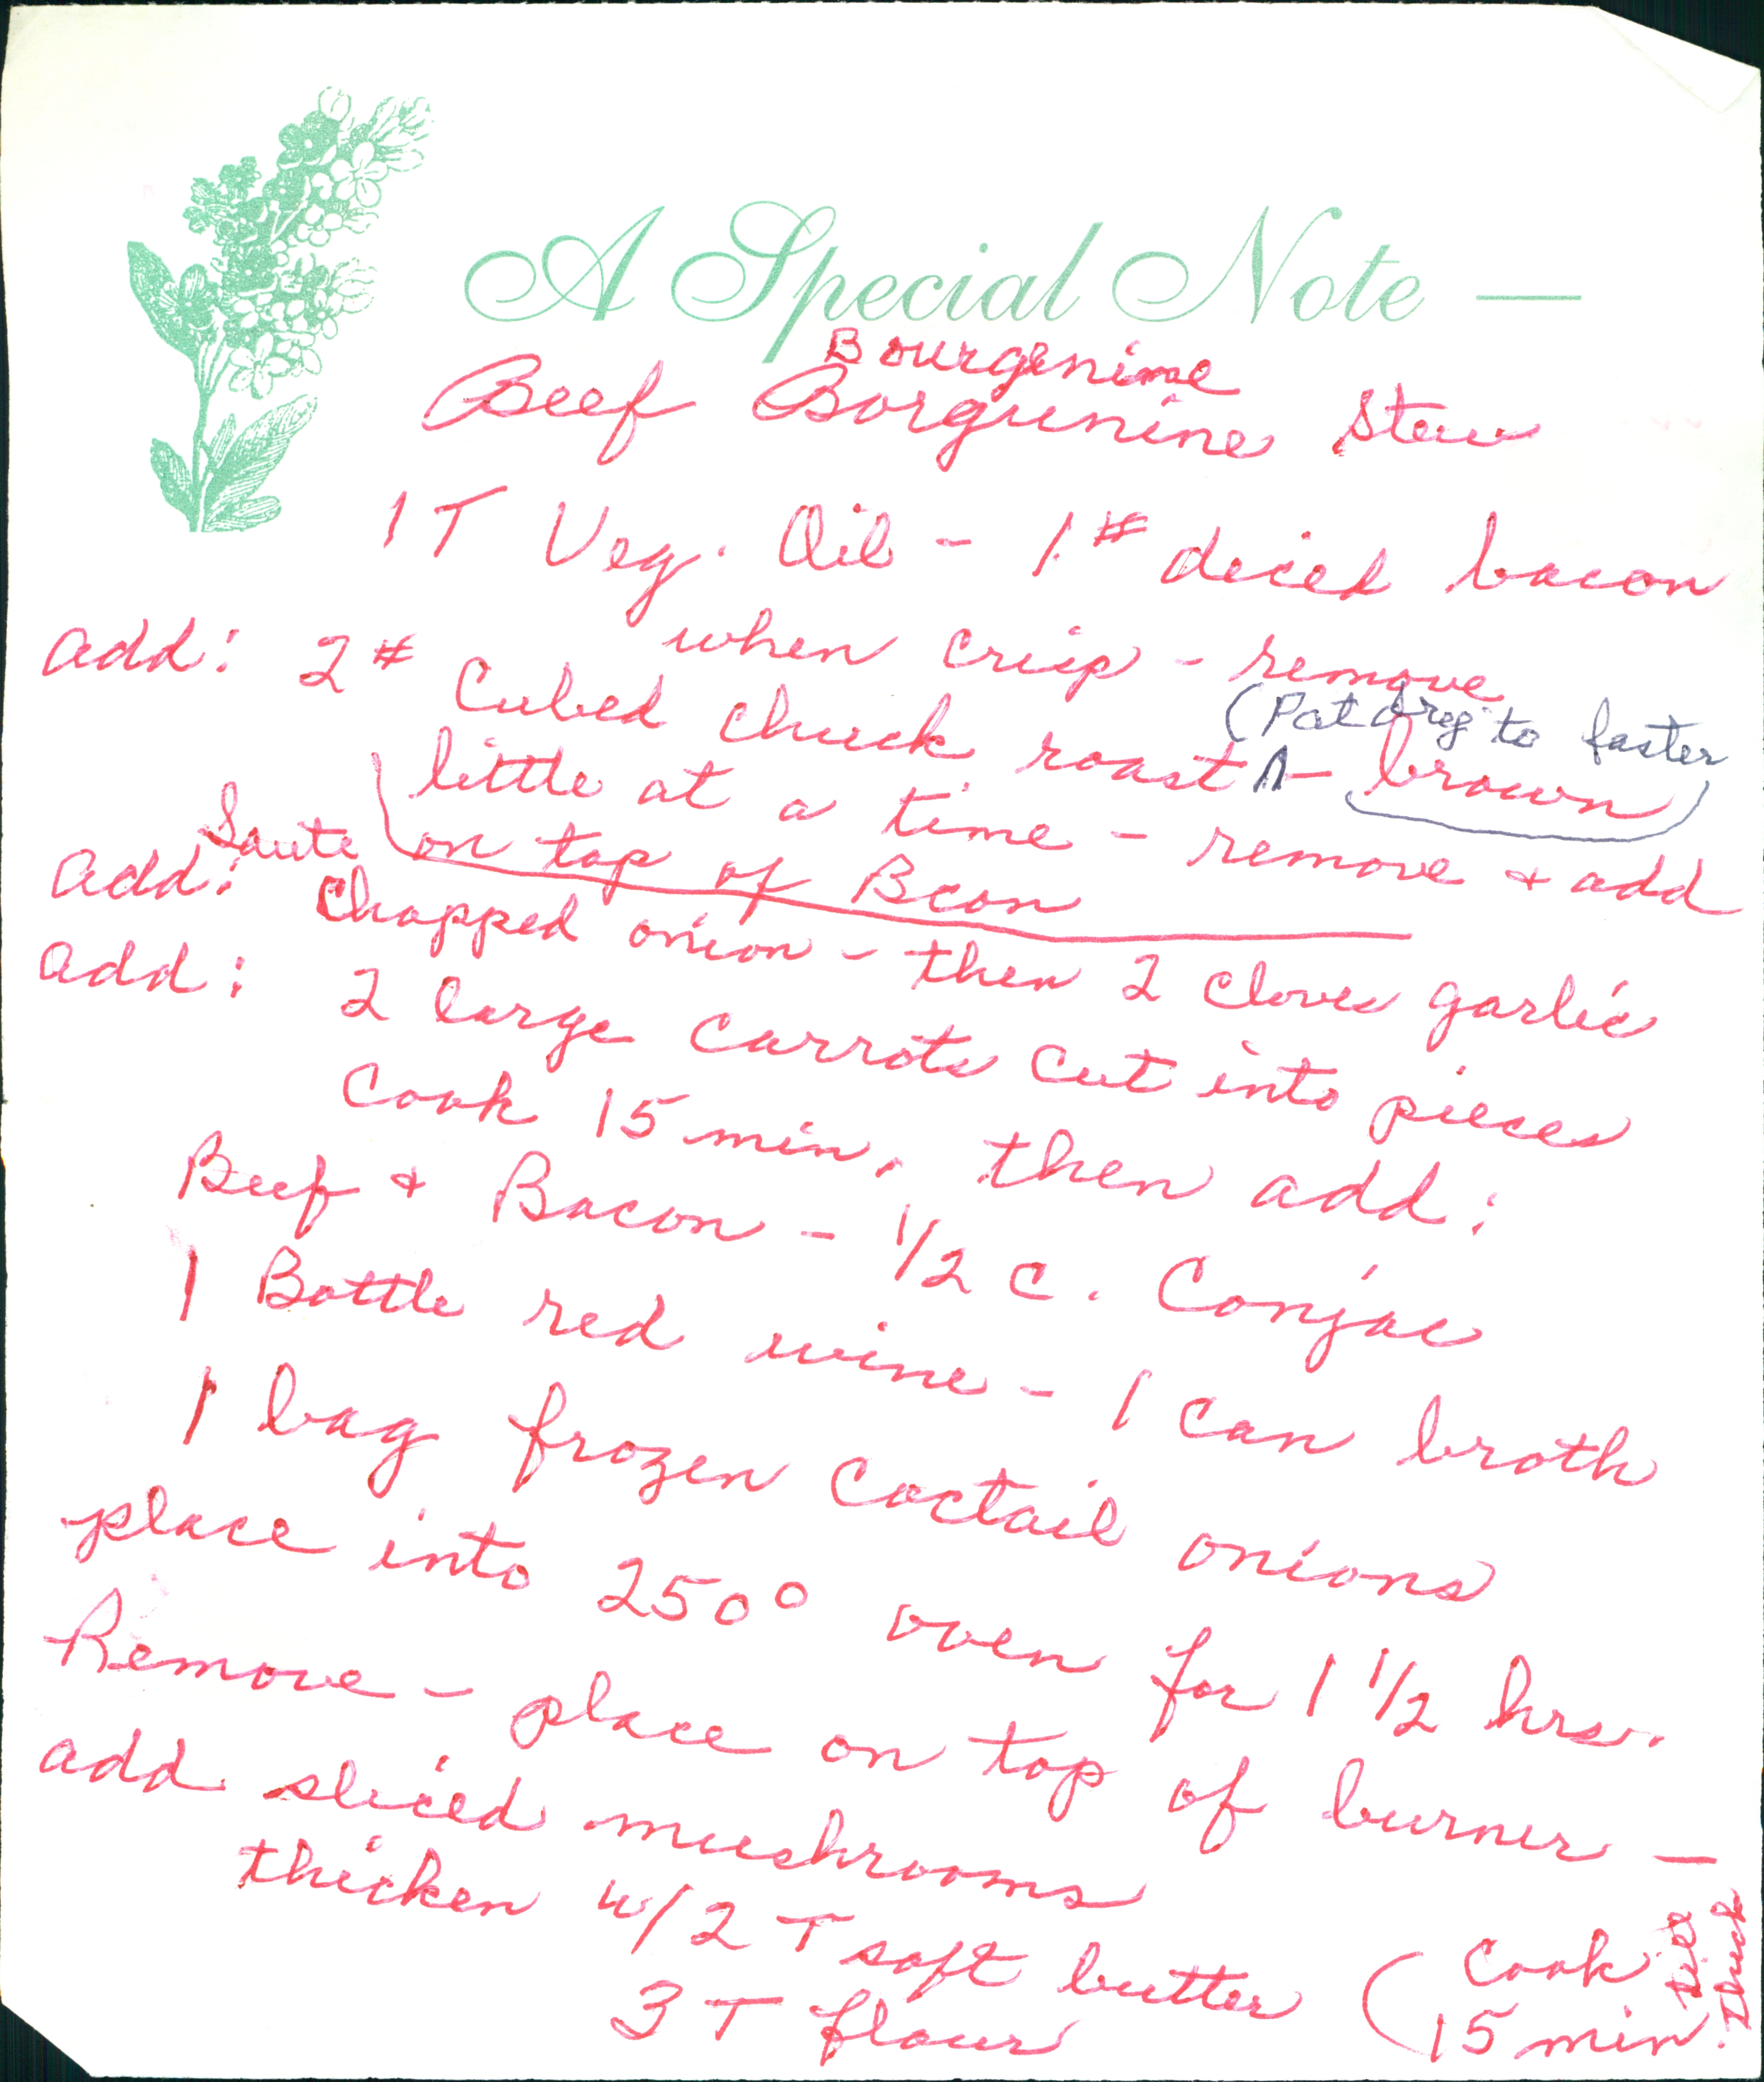 A Special Note —
Bourgenine
Beef Borgunine Stew
1 T Veg. Oil - 1 # diced bacon
when crisp - remove
add: 2 # Cubed chuck roast - brown
(Pat dry to faster
little at a time - remove + add
on top of Bcon
Saute
add: Chopped onion - then 2 cloves garlic
add: 2 large carrots cut into pieces
Cook 15 min, then add:
Beef + Bacon - 1/2 C. Conjac
1 Bottle red wine - 1 can broth
1 bag frozen coctail onions
place into 250° oven for 1 1/2 hrs.
Remove - place on top of burner —
add sliced muchrooms
thicken w/2 T soft butter
3 T flour
(Cook
15 min.
till
Thick